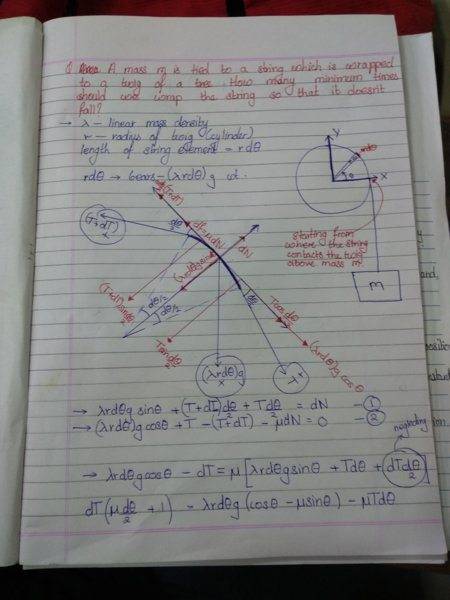 Q A mass m is tied to a string which is wrapped
to a twig of a tree. How many minimum times
should we wrap the string so that it doesn't
fall?
→ λ – linear mass density
r – radius of twig (cylinder)
length of string element = rdθ
rdθ → bears – (λrdθ)g wt.
y
rdθ
θ
x
starting from
where the string
contacts the twig
above mass m
m
(T+dT)
dθ
df=μdN
dN
(λrdθ)g sinθ
(T+dT)sin dθ/2
dθ/2
dθ/2
T sin dθ/2
(λrdθ)g
T
T cos dθ/2
(λrdθ)g cosθ
→ λrdθg sinθ + (T+dT)dθ/2 + Tdθ/2 = dN – ①
→ (λrdθ)g cosθ + T – (T+dT) – μdN = 0 – ②
neglecting
→ λrdθg cosθ – dT = μ[λrdθg sinθ + Tdθ + dTdθ/2]
dT(μdθ/2 + 1) = λrdθg (cosθ – μsinθ) – μTdθ